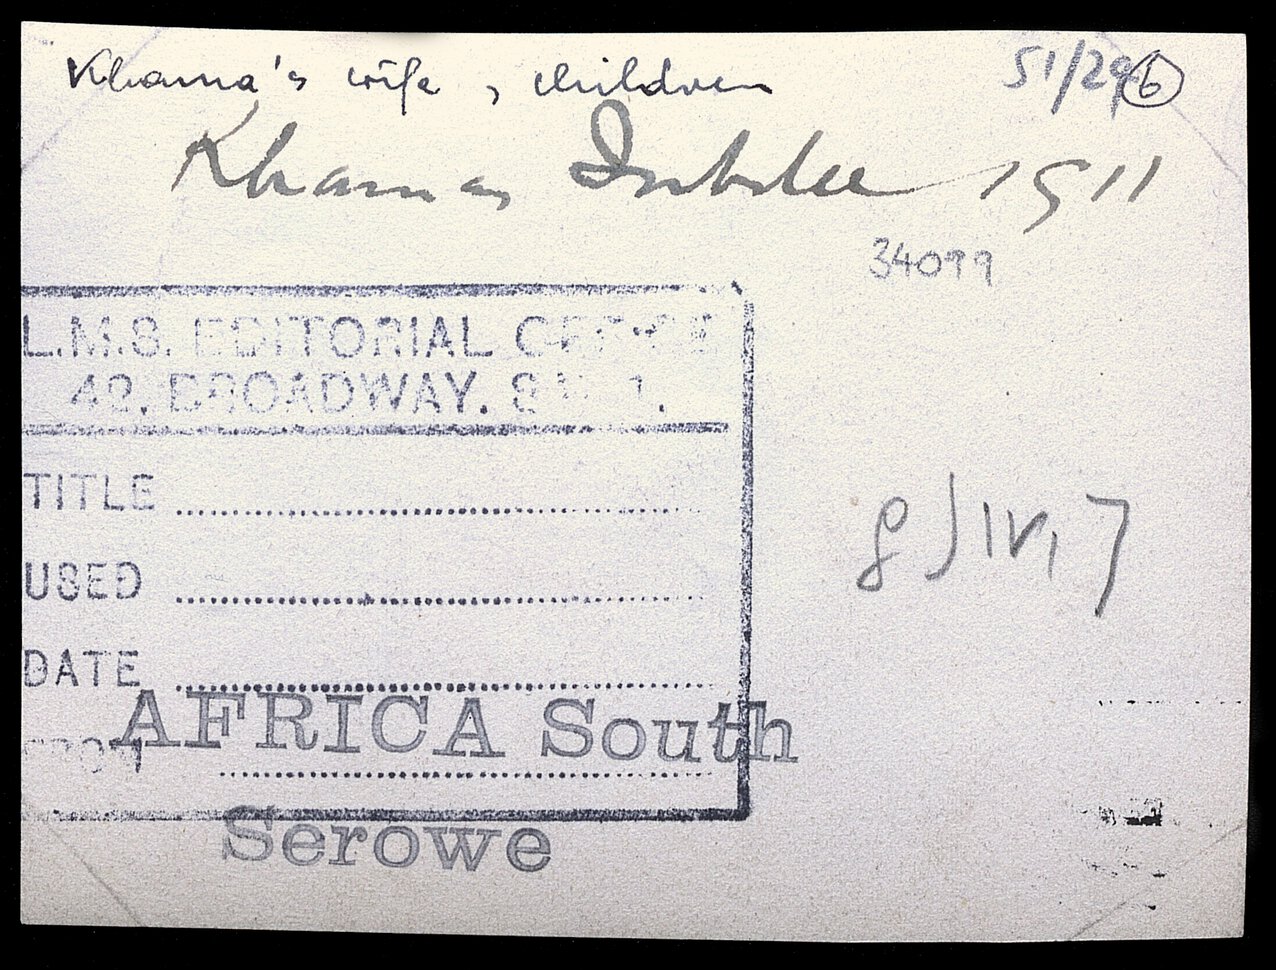 Khama's wife, children
51/29 6
Khamas Jubilee 1911
34099
L.M.S. EDITORIAL OFFICE
42, BROADWAY, S.W. 1.
TITLE
USED
DATE
FROM
AFRICA South
Serowe